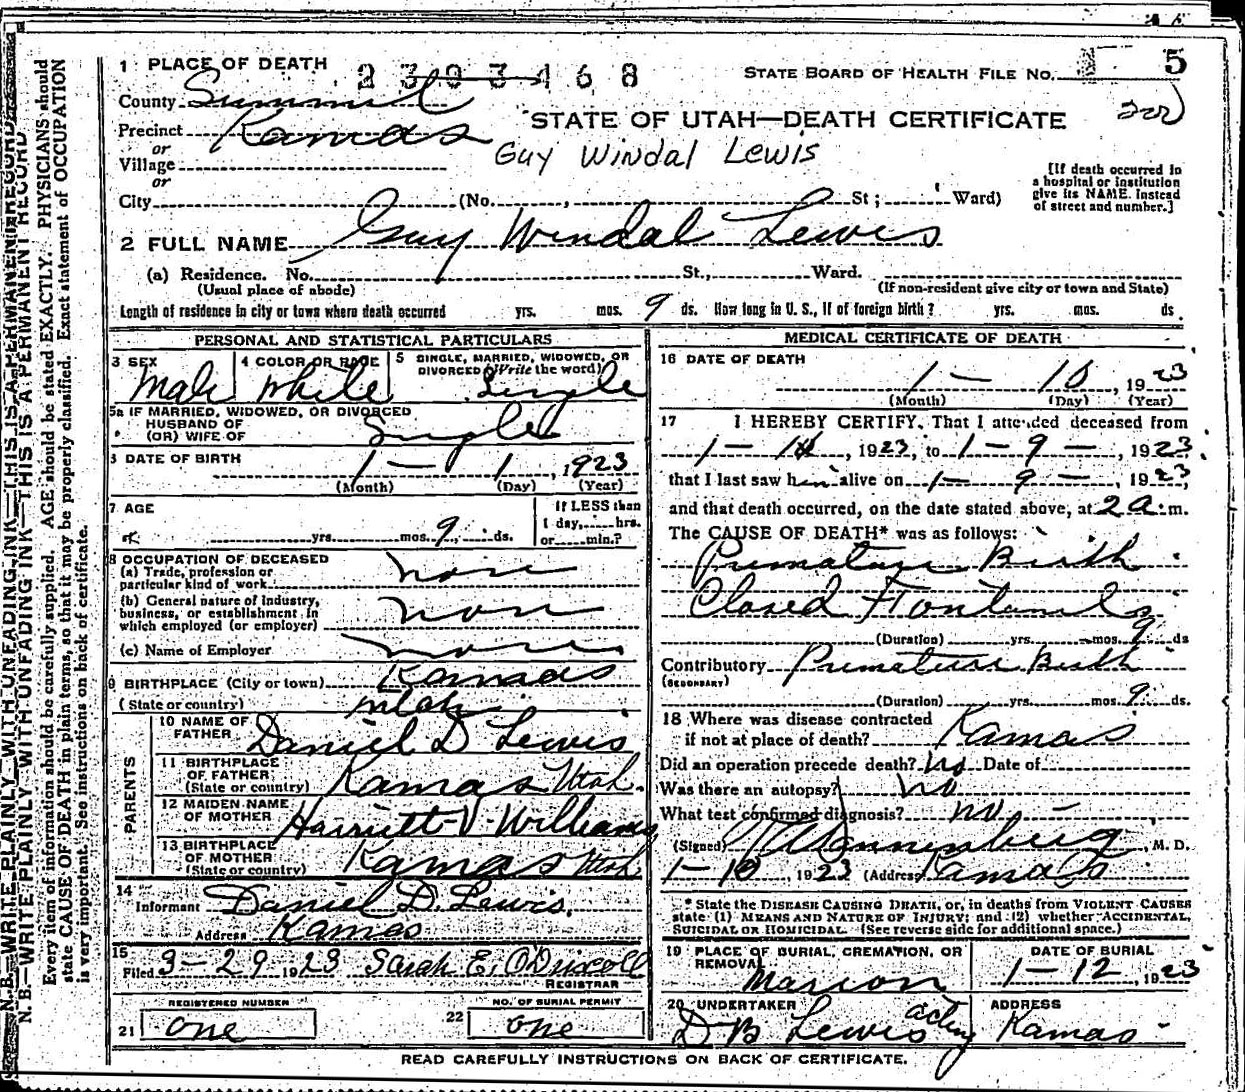 1 PLACE OF DEATH
2303468
STATE BOARD OF HEALTH FILE No. 5
County Summit
STATE OF UTAH—DEATH CERTIFICATE
Precinct Kamas
or
Guy Windal Lewis
Village
or
[If death occurred in
a hospital or institution
give its NAME. instead
of street and number.]
City (No. , St ; Ward)
2 FULL NAME Guy Windal Lewis
(a) Residence. No. St., Ward.
(Usual place of abode) (If non-resident give city or town and State)
Length of residence in city or town where death occurred yrs. mos. 9 ds. How long in U. S., if of foreign birth? yrs. mos. ds.
PERSONAL AND STATISTICAL PARTICULARS
3 SEX Male
4 COLOR OR RACE White
5 SINGLE, MARRIED, WIDOWED, OR
DIVORCED (Write the word) Single
5a IF MARRIED, WIDOWED, OR DIVORCED
HUSBAND OF
(OR) WIFE OF Single
6 DATE OF BIRTH 1 — 1, 1923
(Month) (Day) (Year)
7 AGE
If LESS than
1 day, hrs.
or min.?
yrs. mos. 9 ds.
8 OCCUPATION OF DECEASED
(a) Trade, profession or
particular kind of work none
(b) General nature of industry,
business, or establishment in
which employed (or employer) non
(c) Name of Employer none
9 BIRTHPLACE (City or town) Kamas
(State or country) Utah
PARENTS
10 NAME OF
FATHER Daniel D Lewis
11 BIRTHPLACE
OF FATHER
(State or country) Kamas Utah.
12 MAIDEN NAME
OF MOTHER Harriett V. Williams
13 BIRTHPLACE
OF MOTHER
(State or country) Kamas Utah
14
Informant Daniel D. Lewis,
Address Kamas
15
Filed 3-29 1923 Sarah E. O'Driscoll
REGISTRAR
REGISTERED NUMBER
21 one
NO. OF BURIAL PERMIT
22 one
MEDICAL CERTIFICATE OF DEATH
16 DATE OF DEATH
1 — 10, 1923
(Month) (Day) (Year)
17 I HEREBY CERTIFY, That I attended deceased from
1 — , 1923, to 1 — 9 —, 1923
that I last saw him alive on 1 — 9 —, 1923,
and that death occurred, on the date stated above, at 2 a. m.
The CAUSE OF DEATH* was as follows:
Premature Birth
Closed Fontanels
(Duration) yrs. mos. 9 ds
Contributory Premature Birth
(SECONDARY)
(Duration) yrs. mos. 9 ds.
18 Where was disease contracted
if not at place of death? Kamas
Did an operation precede death? No Date of
Was there an autopsy? no
What test confirmed diagnosis? no —
(Signed) , M. D.
1-10, 1923 (Address) Kamas
* State the DISEASE CAUSING DEATH, or, in deaths from VIOLENT CAUSES
state (1) MEANS AND NATURE OF INJURY; and (2) whether ACCIDENTAL,
SUICIDAL or HOMICIDAL. (See reverse side for additional space.)
19 PLACE OF BURIAL, CREMATION, OR
REMOVAL Marion
DATE OF BURIAL
1 — 12, 1923
20 UNDERTAKER
D B Lewis acting
ADDRESS
Kamas
READ CAREFULLY INSTRUCTIONS ON BACK OF CERTIFICATE.
N. B.—WRITE PLAINLY WITH UNFADING INK—THIS IS A PERMANENT RECORD
N. B.—WRITE PLAINLY WITH UNFADING INK—THIS IS A PERMANENT RECORD
Every item of information should be carefully supplied. AGE should be stated EXACTLY. PHYSICIANS should
state CAUSE OF DEATH in plain terms, so that it may be properly classified. Exact statement of OCCUPATION
is very important. See instructions on back of certificate.